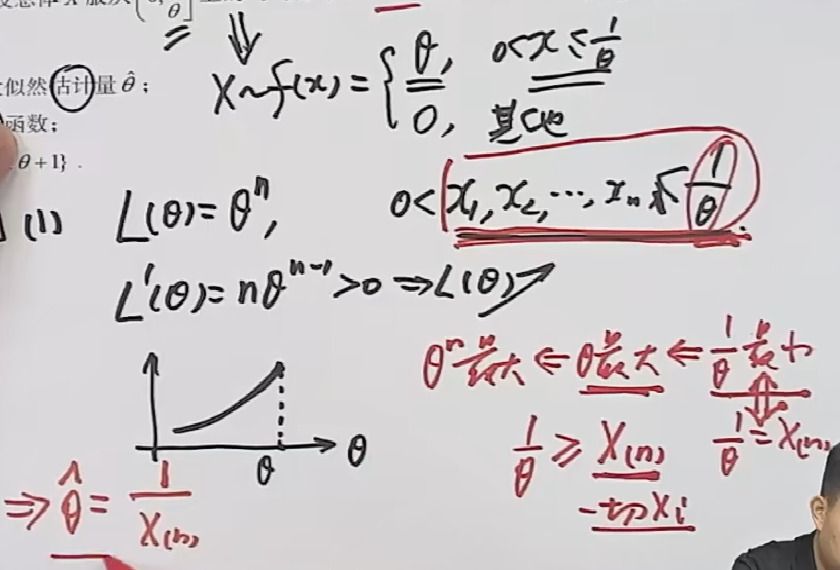 θ
似然估计量 θ̂；
X~f(x)= { θ, 0<x≤1/θ
0, 其他
函数；
θ+1}.
(1) L(θ)=θⁿ, 0<x₁,x₂,⋯,xₙ≤1/θ.
L'(θ)=nθⁿ⁻¹>0 ⇒L(θ)↗
θⁿ最大 ⇐ θ最大 ⇐ 1/θ最小
1/θ ≥ X(n) 1/θ=X(n)
一切Xi
θ θ
⇒ θ̂ = 1/X(n)